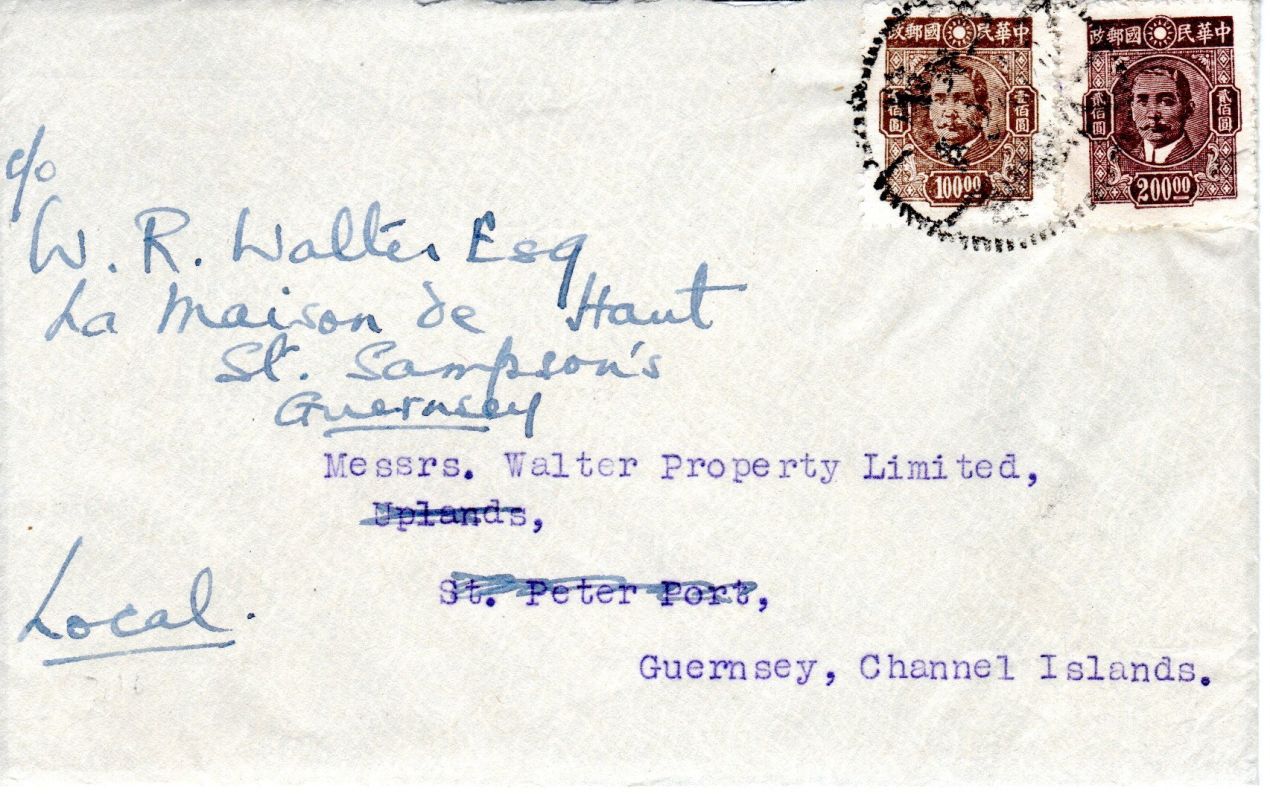 政郵國民華中
壹佰圓
佰圓
100.00
政郵國民華中
貳佰圓
貳佰圓
200.00
c/o
W. R. Walter Esq
La Maison de Haut
St. Sampson's
Guernsey
Messrs. Walter Property Limited,
Uplands,
St. Peter Port,
Local.
Guernsey, Channel Islands.